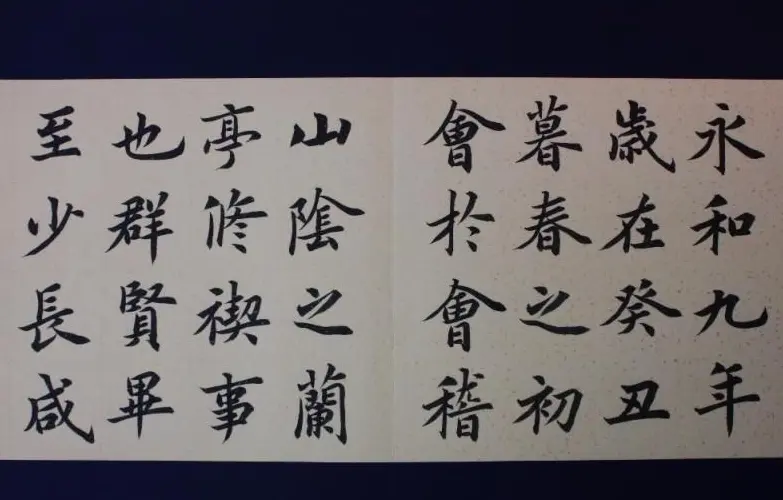 永和九年
歲在癸丑
暮春之初
會於會稽
山陰之蘭
亭修禊事
也群賢畢
至少長咸